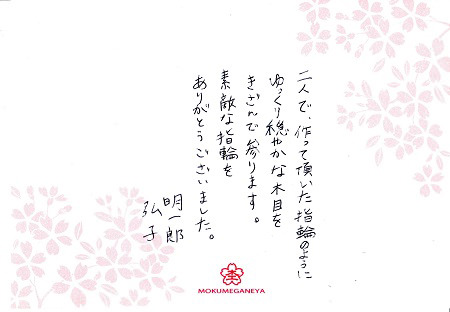 二人で、作って頂いた指輪のように
ゆっくり穏やかな木目を
きざんで参ります。
素敵な指輪を
ありがとうございました。
明一郎
弘子
MOKUMEGANEYA